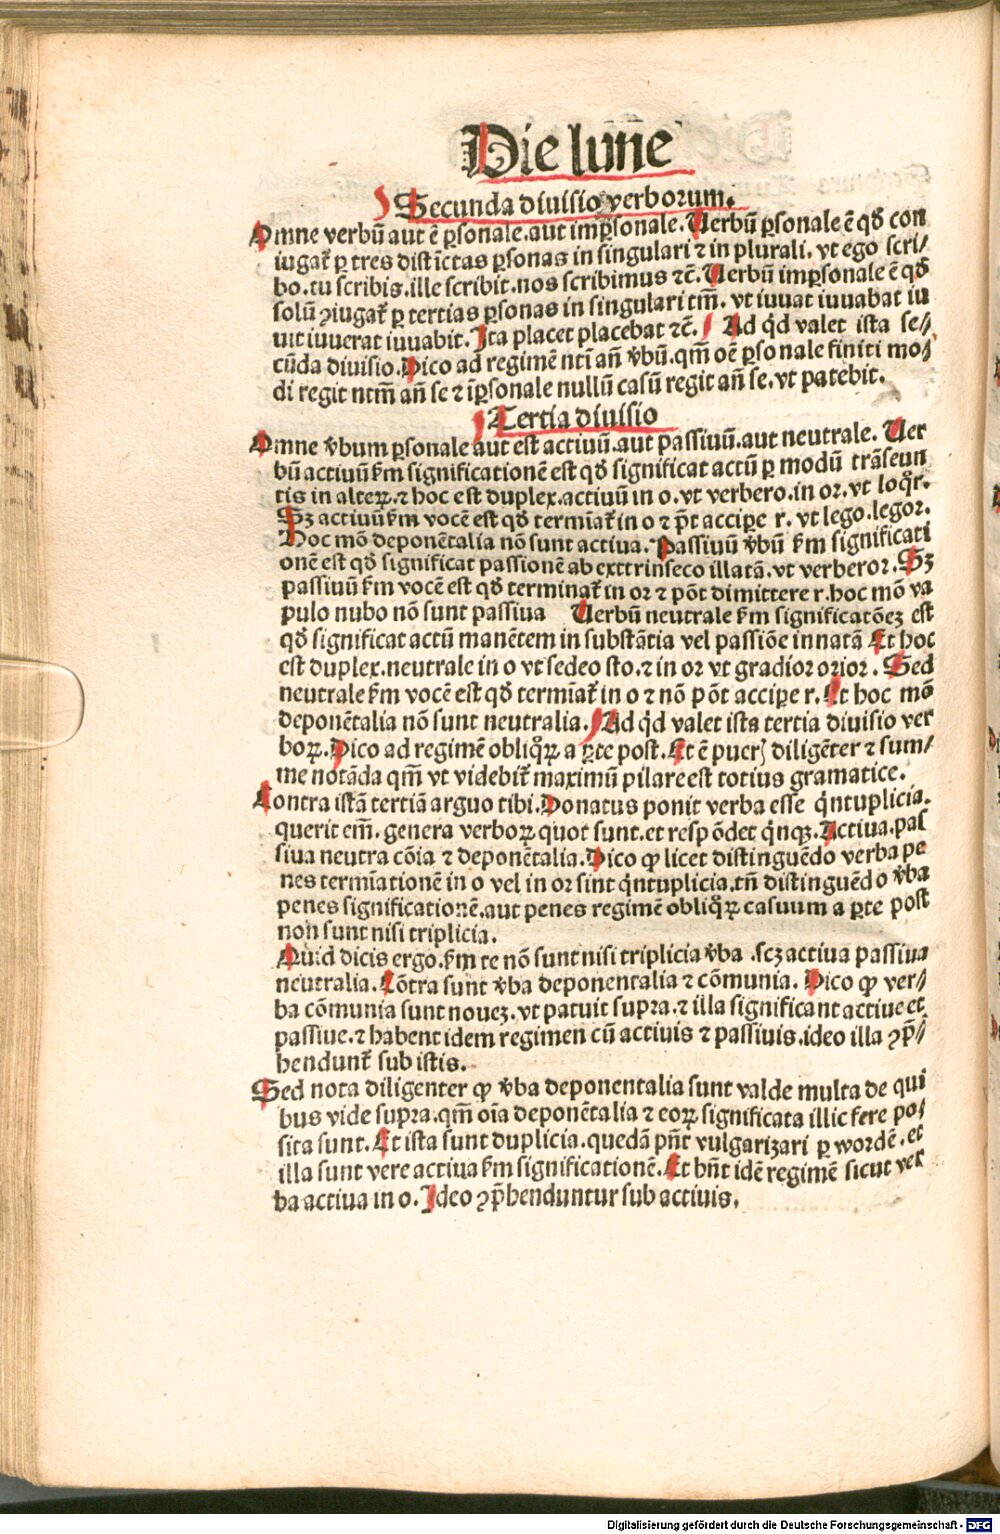 Die lun̄e
Secunda diuisio verborum.
Omne verbū aut ē ꝑsonale.aut imꝑsonale. Uerbū ꝑsonale ē qđ con
iugat᷑ ꝑ tres distīctas ꝑsonas in singulari ⁊ in plurali. vt ego scri/
bo.tu scribis.ille scribit.nos scribimus ⁊c̄. Uerbū imꝑsonale ē qđ
solū ꝯiugat᷑ ꝑ tertias ꝑsonas in singulari tm̄. vt iuuat iuuabat iu
uit iuuerat iuuabit. Ita placet placebat ⁊c̄. Ad qͥd valet ista se/
cūda diuisio. Dico ad regimē ntī an̄ v̄bū.qm̄ oē ꝑsonale finiti mo/
di regit ntm̄ an̄ se ⁊ īꝑsonale nullū casū regit an̄ se.vt patebit.
Tertia diuisio
Omne v̄bum ꝑsonale aut est actiuū.aut passiuū.aut neutrale. Uer
bū actiuū ẜm significationē est qđ significat actū ꝑ modū trāseun
tis in alteꝝ.⁊ hoc est duplex.actiuū in o.vt verbero.in or.vt loqͦr.
Sꝫ actiuū ẜm vocē est qđ termīat᷑ in o ⁊ p̄t acciꝑe r. vt lego.legor.
Hoc mō deponētalia nō sunt actiua. Passiuū v̄bū ẜm significati
onē est qđ significat passionē ab exttrinseco illatā.vt verberor. Sꝫ
passiuū ẜm vocē est qđ terminat᷑ in or ⁊ pōt dimittere r.hoc mō va
pulo nubo nō sunt passiua Uerbū neutrale ẜm significatōeꝫ est
qđ significat actū manētem in substātia vel passiōe innatā Et hoc
est duplex.neutrale in o vt sedeo sto.⁊ in or vt gradior orior. Sed
neutrale ẜm vocē est qđ termīat᷑ in o ⁊ nō pōt acciꝑe r. Et hoc mō
deponētalia nō sunt neutralia. Ad qͥd valet ista tertia diuisio ver
boꝝ. Dico ad regimē obliqͦꝝ a ꝑte post. Et ē puerꝭ diligēter ⁊ sum/
me notāda qm̄ vt videbit᷑ maximū pilare est totius gramatice.
Contra istā tertiā arguo tibi. Donatus ponit verba esse qͥntuplicia.
querit em̄. genera verboꝝ quot sunt.et respōdet qͥnqꝫ. Actiua.pas
siua neutra cōia ⁊ deponētalia. Dico ꝙ licet distinguēdo verba pe
nes termīationē in o vel in or sint qͥntuplicia.tn̄ distinguēdo v̄ba
penes significationē.aut penes regimē obliqͦꝝ casuum a ꝑte post
non sunt nisi triplicia.
Quid dicis ergo.ẜm te nō sunt nisi triplicia v̄ba .scꝫ actiua passiua
neutralia. Cōtra sunt v̄ba deponentalia ⁊ cōmunia. Dico ꝙ ver/
ba cōmunia sunt noueꝫ.vt patuit supra.⁊ illa significant actiue et
passiue.⁊ habent idem regimen cū actiuis ⁊ passiuis.ideo illa ꝯp̄/
hendunt᷑ sub istis.
Sed nota diligenter ꝙ v̄ba deponentalia sunt valde multa de qui
bus vide supra.qm̄ oīa deponētalia ⁊ eoꝝ significata illic fere po/
sita sunt. Et ista sunt duplicia.quedā pn̄t vulgarizari ꝑ wordē.et
illa sunt vere actiua ẜm significationē. Et hn̄t idē regimē sicut ver
ba actiua in o. Ideo ꝯp̄henduntur sub actiuis.
Digitalisierung gefördert durch die Deutsche Forschungsgemeinschaft - DFG